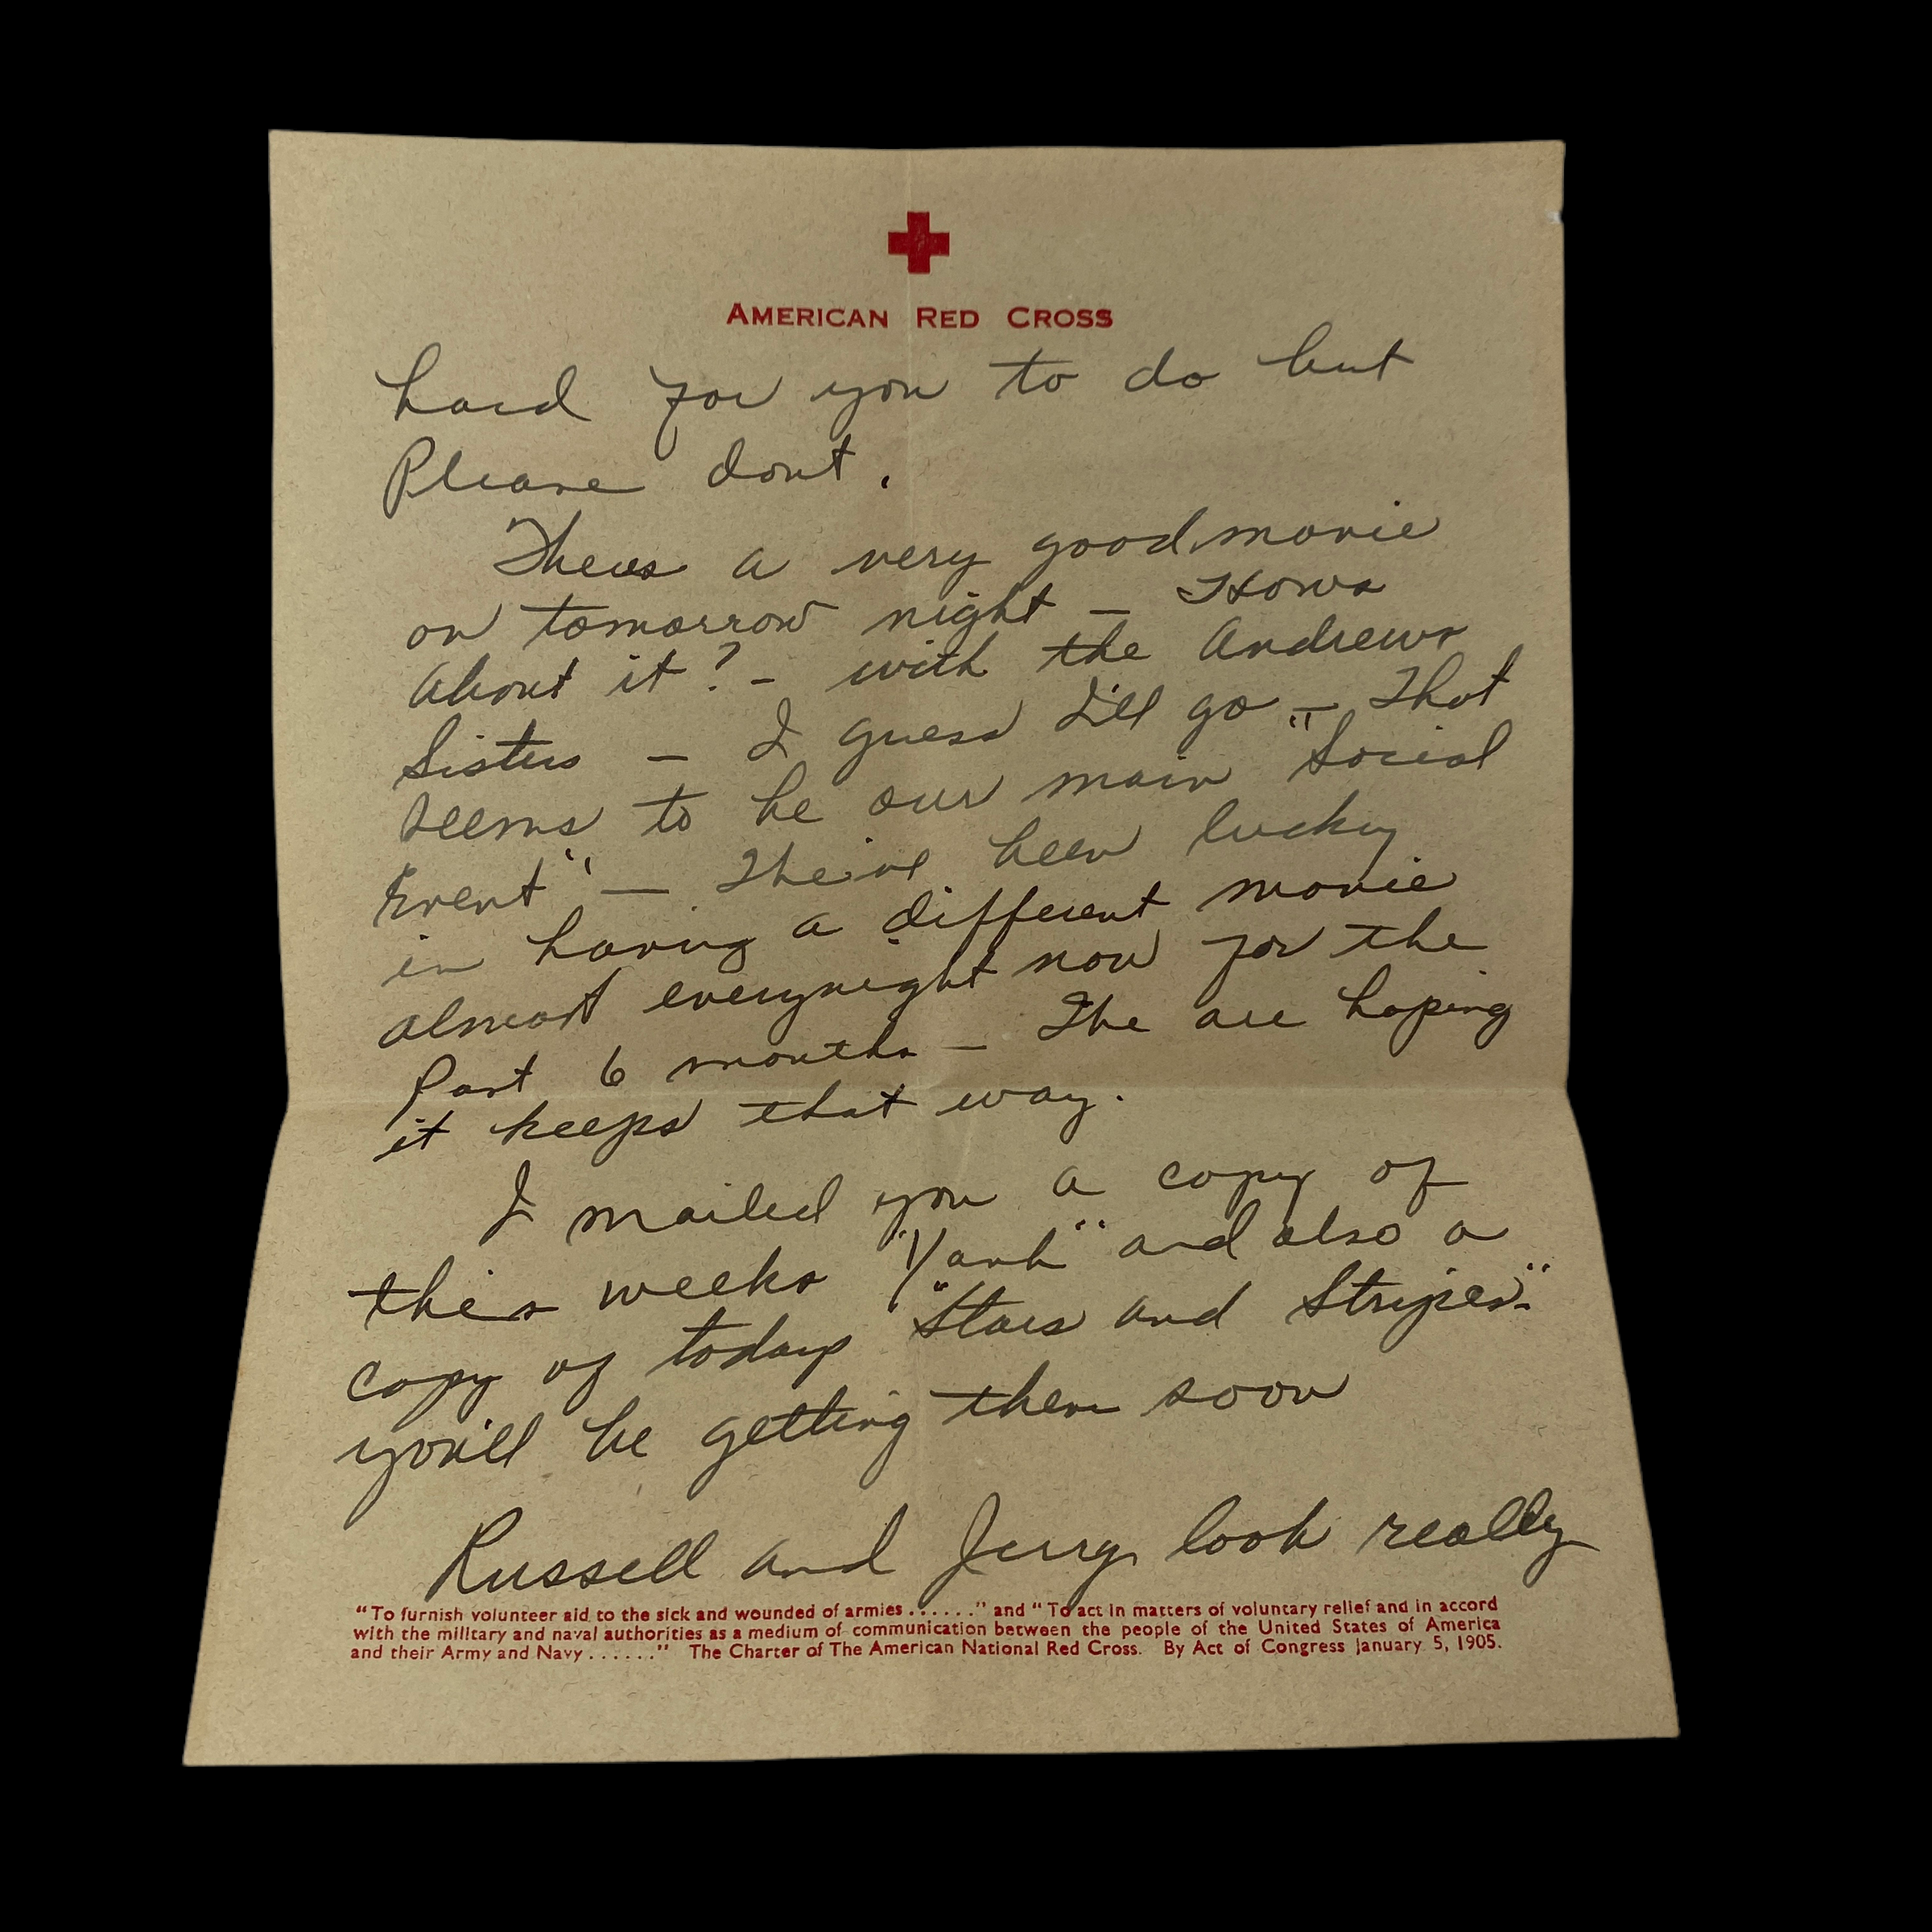 AMERICAN RED CROSS
hard for you to do but
Please dont.
Theres a very good movie
on tomorrow night — Hows
About it? - with the Andrews
Sisters — I guess I'll go — That
seems to be our main "Social
Event" — The've been lucky
in having a different movie
almost everynight now for the
Past 6 months — The are hoping
it keeps that way.
I mailed you a copy of
this weeks "Yank" and also a
copy of todays "Stars and Stripes".
you'll be getting them soon
Russell and Jerry look really
"To furnish volunteer aid to the sick and wounded of armies ......" and "To act in matters of voluntary relief and in accord
with the military and naval authorities as a medium of communication between the people of the United States of America
and their Army and Navy ......" The Charter of The American National Red Cross. By Act of Congress January 5, 1905.